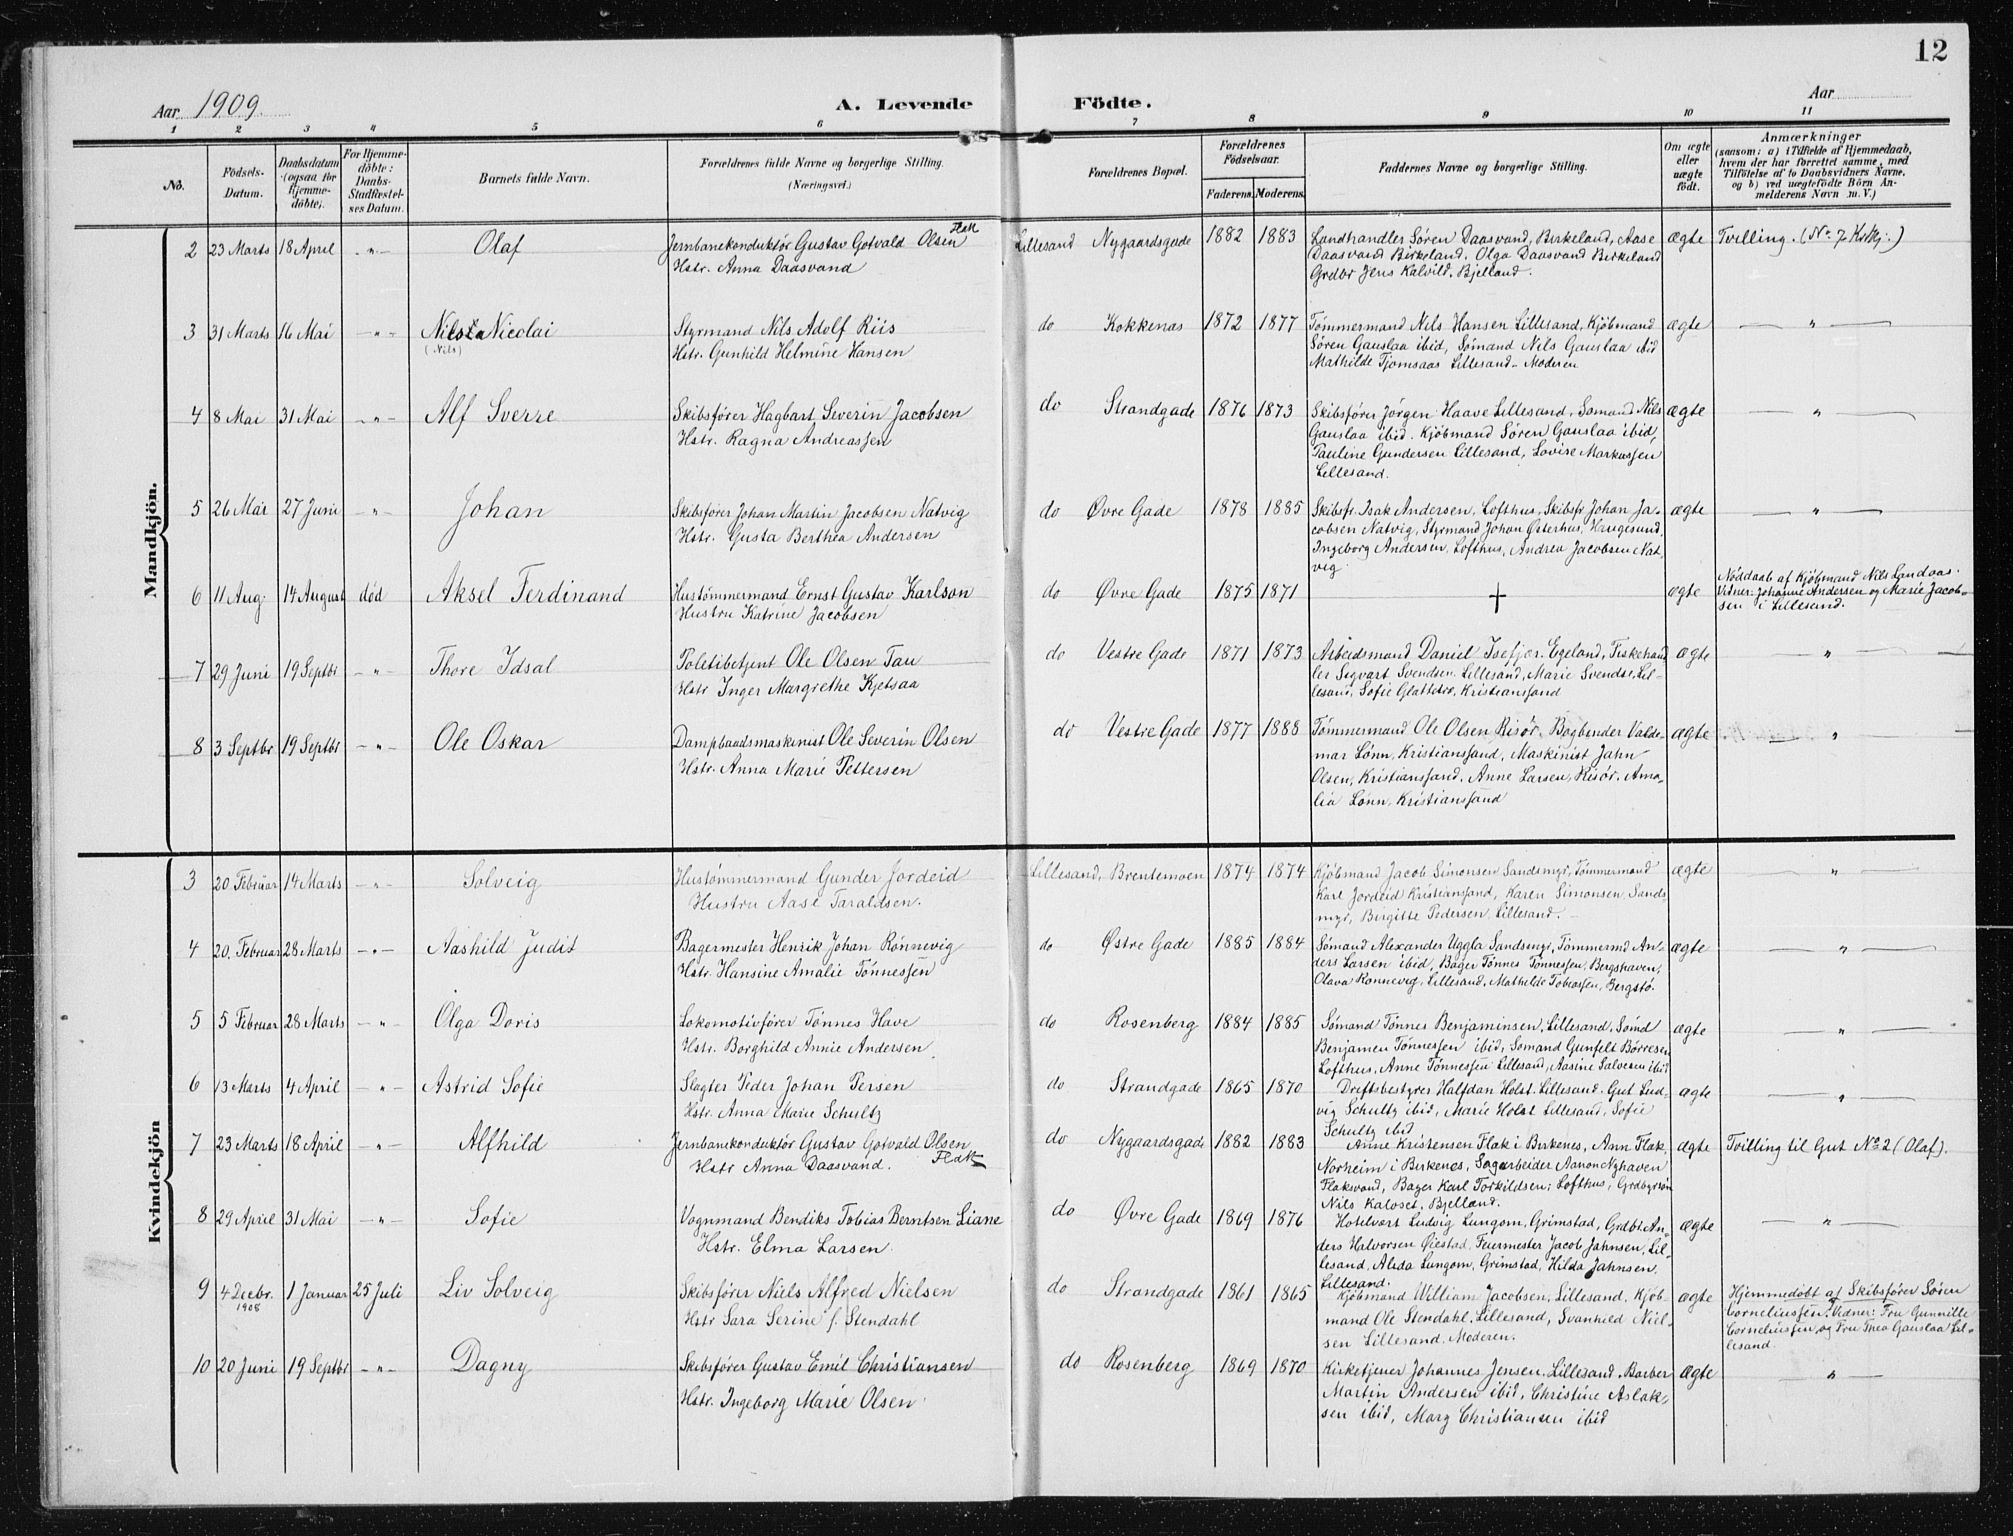 12
Aar 1909.
A. Levende Födte.
Aar
1 2 3 4 5 6 7 8 9 10 11
No.
Födsels-
Datum.
Daabsdatum
(ogsaa for
Hjemme-
döbte).
For Hjemme-
döbte:
Daabs-
Stadfæstel-
ses Datum.
Barnets fulde Navn.
Forældrenes fulde Navne og borgerlige Stilling.
(Næringsvei.)
Forældrenes Bopæl.
Forældrenes
Födselsaar.
Faderens. Moderens.
Faddernes Navne og borgerlige Stilling.
Om ægte
eller
uægte
født.
Anmærkninger
(saasom: a) i Tilfælde af Hjemmedaab,
hvem der har forrettet samme, med
Tilföielse af to Daabsvidners Navne,
og b) ved uægtefödte Börn An-
melderens Navn m. V.)
Mandkjön.
2 23 Marts 18 April - " - Olaf
Jernbanekonduktör Gustav Gotvald Olsen Flak
Hstr. Anna Daasvand
Lillesand Nygaardsgade 1882 1883
Landhandler Sören Daasvand, Birkeland, Aase
Daasvand Birkeland, Olga Daasvand Birkeland
Grdbr Jens Kalvild, Bjelland.
ægte Tvilling. (No. 7 Kvkj.)
3 31 Marts 16 Mai - " - Nicolai
(Nils)
Styrmand Nils Adolf Riis
Hstr. Gunhild Helmine Hansen
do Kokkenes 1872 1877
Tömmermand Nils Hansen Lillesand, Kjöbmand
Sören Gauslaa ibid, Sömand Nils Gauslaa ibid
Mathilde Tjomsaas Lillesand - Moderen
ægte - " -
4 8 Mai 31 Mai - " - Alf Sverre
Skibsfører Hagbart Severin Jacobsen
Hstr. Ragna Andreassen
do Strandgade 1876 1873
Skibsfører Jörgen Haave Lillesand, Sömand Nils
Gauslaa ibid. Kjöbmand Sören Gauslaa ibid,
Pauline Gundersen Lillesand, Lovise Markussen
Lillesand.
ægte - " -
5 26 Mai 27 Juni - " - Johan
Skibsfører Johan Martin Jacobsen Natvig
Hstr. Gusta Berthea Andersen
do Øvre Gade 1878 1885
Skibsfr. Isak Andersen, Lofthus, Skibsfr Johan Ja-
cobsen Natvig, Styrmand Johan Østerhus, Haugesund,
Ingeborg Andersen, Lofthus, Andrea Jacobsen Nat-
vig
ægte - " -
6 11 Aug 14 August död Aksel Ferdinand
Hustömmermand Ernst Gustav Karlson
Hustru Katrine Jacobsen
do Øvre Gade 1875 1871
+
ægte
Nöddaab af Kjöbmand Nils Landaas.
Vidner: Johanne Andersen og Marie Jacob-
sen i Lillesand.
7 29 Juni 19 Septbr - " - Thore Idsal
Politibetjent Ole Olsen Tau
Hstr Inger Margrethe Kjetsaa
do Vestre Gade 1871 1873
Arbeidsmand Daniel Isefjær Egeland, Fiskehand
ler Sigvart Svendsen Lillesand, Marie Svendse, Lil-
lesand, Sofie Glattetre, Kristianssand
ægte - " -
8 3 Septbr 19 Septbr - " - Ole Oskar
Dampbaadsmaskinist Ole Severin Olsen
Hstr. Anna Marie Pettersen
do Vestre Gade 1877 1888
Tömmermand Ole Olsen Risör, Bogbinder Valde-
mar Lönn, Kristianssand, Maskinist Jahn
Olsen, Kristianssand, Anne Larsen, Risör, Ama-
lia Lönn, Kristianssand
ægte - " -
Kvindekjön
3 20 Februar 14 Marts - " - Solveig
Hustömmermand Gunder Jordeid
Hustru Aase Taraldsen.
Lillesand, Brentemoen 1874 1874
Kjöbmand Jacob Simonsen Sandsmyr, Tömmermand
Karl Jordeid Kristianssand, Karen Simonsen Sands
myr, Birgitte Pedersen, Lillesand.
ægte - " -
4 20. Februar 28 Marts - " - Aashild Judit
Bagermester Henrik Johan Rönnevig
Hstr. Hansine Amalie Tönnessen
do Østre Gade 1885 1884
Sömand Alexander Uggla Sandsmyr, Tömmermd An-
ders Larsen ibid, Bager Tönnes Tönnessen, Bergshaven,
Olava Rönnevig, Lillesand, Mathilde Tobiassen, Bergstö.
ægte - " -
5 5 Februar 28 Marts - " - Olga Doris
Lokomotivfører Tönnes Have
Hstr. Borghild Annie Andersen
do Rosenberg 1884 1885
Sömand Tönnes Benjaminsen, Lillesand, Sömd
Benjamen Tönnessen ibid, Sömand Gunfelt Börresen
Lofthus, Anne Tönnessen Lillesand, Aasine Salvesen ibid
ægte - " -
6 13 Marts 4 April - " - Astrid Sofie
Slagter Peder Johan Persen
Hstr. Anna Marie Schultz
do Strandgade 1865 1870
Driftsbestyrer Halfdan Holst Lillesand. Gut Lud-
vig Schultz ibid, Marie Holst Lillesand, Sofie
Schultz ibid
ægte - " -
7 23 Marts 18 April - " - Alfhild
Jernbanekonduktör Gustav Gotvald Olsen
Hstr Anna Daasvand. Flak
do Nygaardsgade 1882 1883
Anne Kristensen Flak i Birkenes, Ann Flak
Norheim i Birkenes, Sagarbeider Aanon Nyhaven
Flaksvand, Bager Karl Torkildsen, Lofthus, Grdbrsön
Nils Kaloset, Bjelland.
ægte Tvilling til Gut No 2 (Olaf).
8 29 April 31 Mai - " - Sofie
Vognmand Bendiks Tobias Berntsen Liane
Hstr. Elma Larsen
do Øvre Gade 1869 1876
Hotelvært Ludvig Lungom, Grimstad, Grdbr. An-
ders Halvorsen Øiestad, Feiermester Jacob Jahnsen, Lil-
lesand, Alida Lungom, Grimstad, Hilda Jahnsen,
Lillesand.
ægte - " -
9 4 Decbr. 1 Januar 25 Juli Liv Solveig
1908
Skibsfører Niels Alfred Nielsen
Hstr Sara Serine f. Stendahl
do Strandgade 1861 1865
Kjöbmand William Jacobsen, Lillesand, Kjöb-
mand Ole Stendahl, Lillesand, Svanhild Niel-
sen Lillesand. Moderen.
ægte
Hjemmedöbt af Skibsfører Sören
Corneliussen. Vidner: Fru Gunnille
Corneliussen og Fru Thea Gauslaa Lil-
lesand.
10 20 Juni 19 Septbr - " - Dagny
Skibsfører Gustav Emil Christiansen
Hstr. Ingeborg Marie Olsen
do Rosenberg 1869 1870
Kirketjener Johannes Jensen, Lillesand, Barber
Martin Andersen ibid, Christine Aslak-
sen ibid, Mary Christiansen ibid
ægte - " -